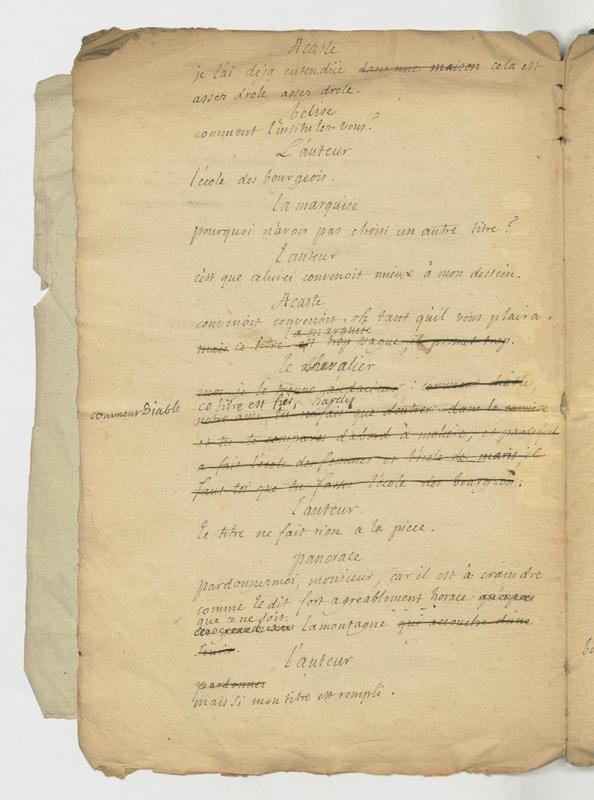 Acaste
je l'ai deja entendüe dans une maison cela est
assez drole assez drole.
belise
comment l'intitulez-vous?
L'auteur
l'école des bourgeois.
la marquise
pourquoi n'avoir pas choisi un autre titre ?
l'auteur
c'est que celui ci convenoit mieux à mon dessein.
Acaste
convenoit convenoit. oh tant qu'il vous plaira.
la marquise
mais ce titre est trop vague, il promet trop.
le chevalier
moi je le trouve audacieux : comment diable,
comment Diable
ce titre est fier, hardy
notre ami, tu ne fais que d'entrer dans la carriere
et tu te compares d'abord à moliere, et parcequ'il
a fait l'école des femmes et l'école des maris il
faut toi que tu fasses l'école des bourgeois.
l'auteur
le titre ne fait rien a la piece.
pancrace
pardonnezmoi, monsieur, car il est à craindre
comme le dit fort agreablement horace
que ce ne soit
la montagne qui accouche d'une
souris.
l'auteur
pardonnez
mais si mon titre est rempli.